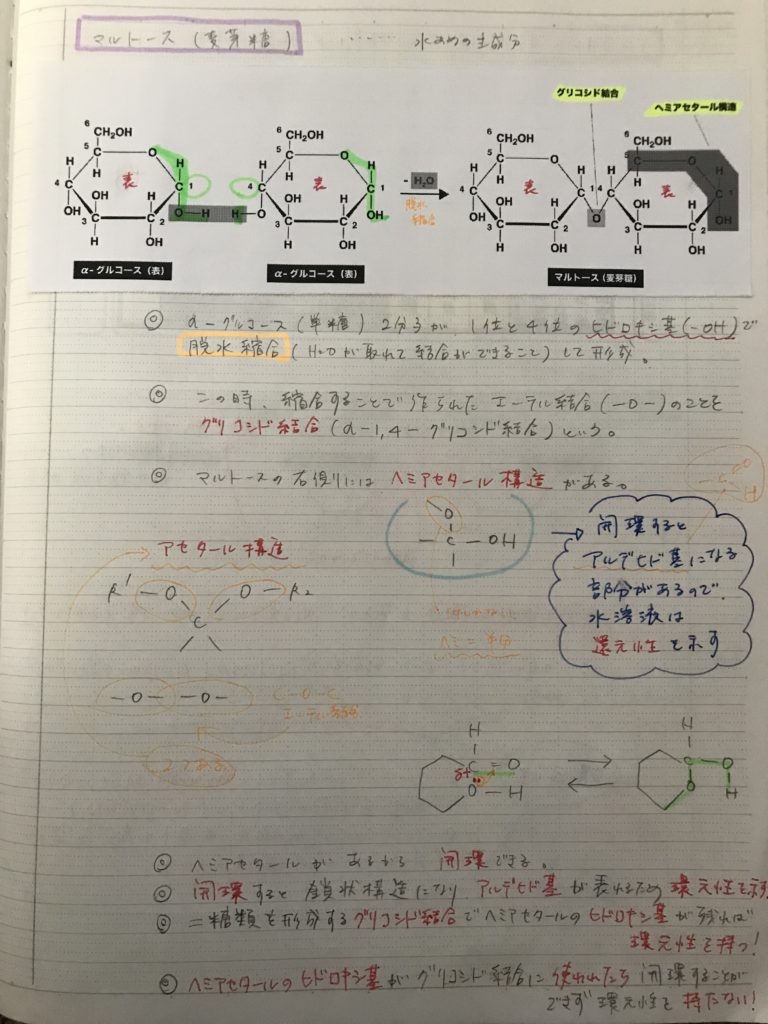 マルトース (麦芽糖) …… 水あめの主成分
グリコシド結合
ヘミアセタール構造
6 CH₂OH 6 CH₂OH 6 CH₂OH 6 CH₂OH
表 表 表 表
- H₂O
脱水
縮合
α-グルコース（表） α-グルコース（表） マルトース（麦芽糖）
◎ α-グルコース(単糖) 2分子が、1位と4位のヒドロキシ基(-OH)で
脱水縮合 (H₂Oが取れて結合ができること) して形成。
◎ この時、縮合することで作られたエーテル結合(-O-)のことを
グリコシド結合(α-1,4-グリコシド結合)という。
◎ マルトースの右側にはヘミアセタール構造がある。
C O H
アセタール構造
R¹ - O O - R₂
C
- O - - O -
C-O-C
エーテル結合
2つある
O
- C - OH
ヘミ=半分
→ 開環すると
アルデヒド基になる
部分があるので、
水溶液は
還元性を示す
H H
δ+ C = O C - O
O - H O H
◎ ヘミアセタールがあるから 開環できる。
◎ 開環すると鎖状構造になり アルデヒド基が表れるため還元性を示す
◎ 二糖類を形成するグリコシド結合でヘミアセタールのヒドロキシ基が残れば
還元性を持つ!
◎ ヘミアセタールのヒドロキシ基がグリコシド結合に使われたら 開環することが
できず還元性を持たない!